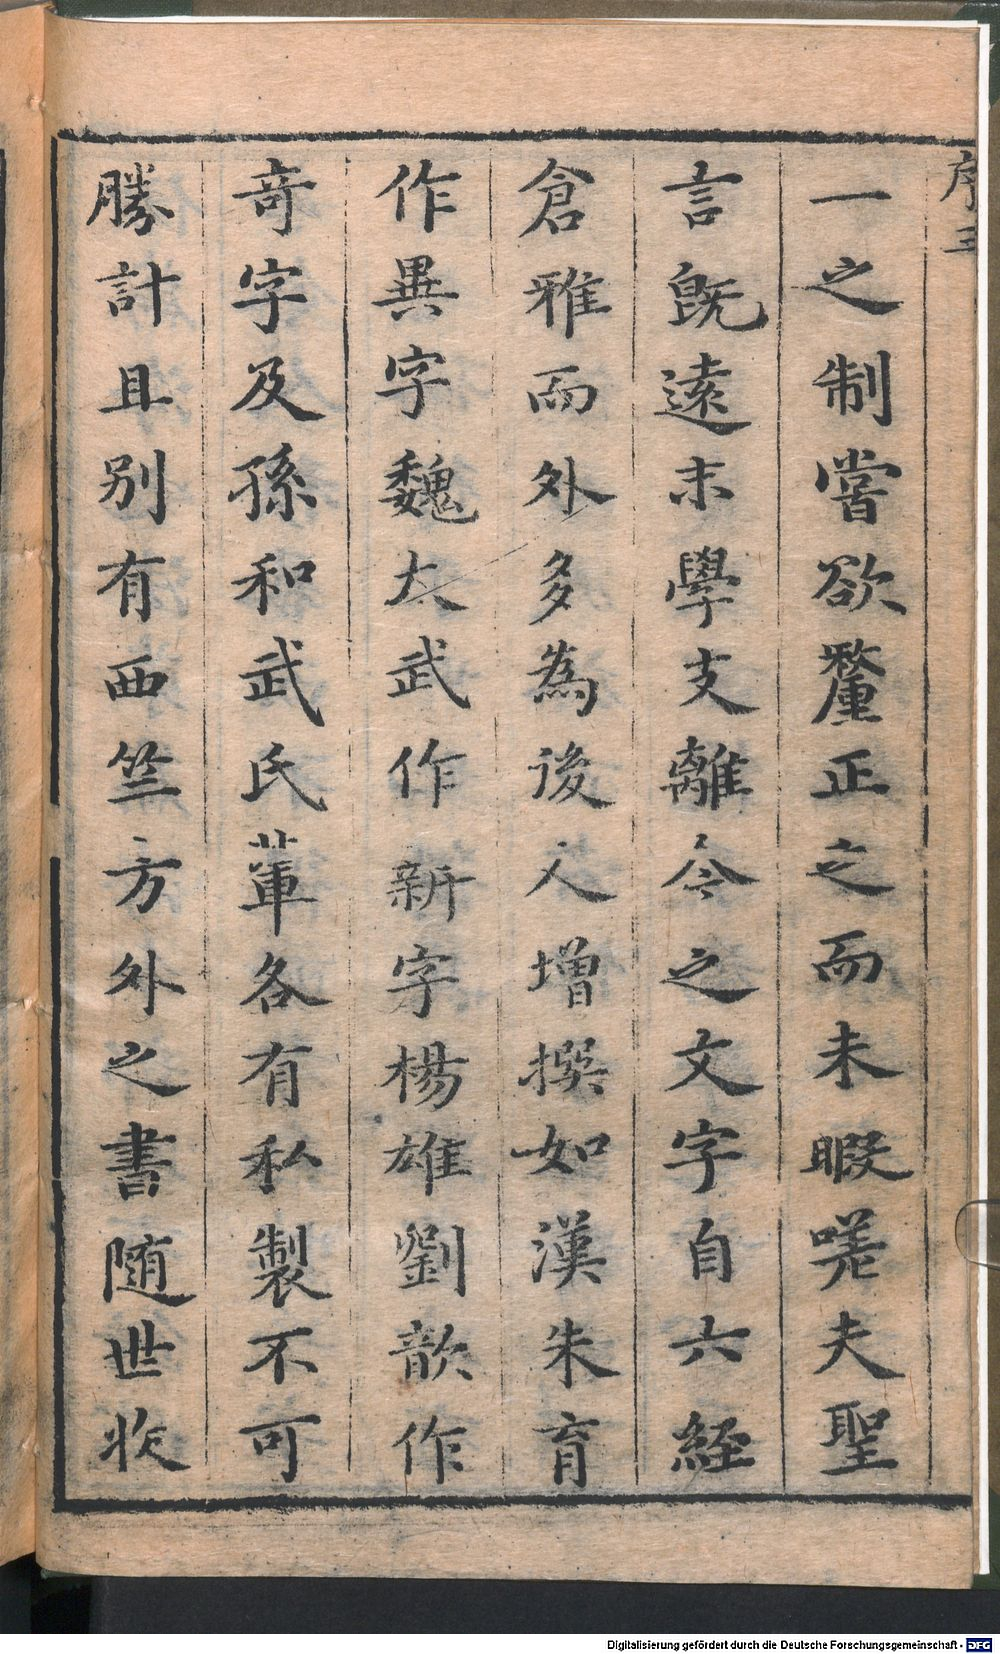 序三
一之制嘗欲釐正之而未暇嗟夫聖
言旣遠末學支離今之文字自六經
倉雅而外多為後人增撰如漢朱育
作異字魏太武作新字楊雄劉歆作
竒字及孫和武氏軰各有私製不可
勝計且别有西竺方外之書随世收
Digitalisierung gefördert durch die Deutsche Forschungsgemeinschaft - DFG